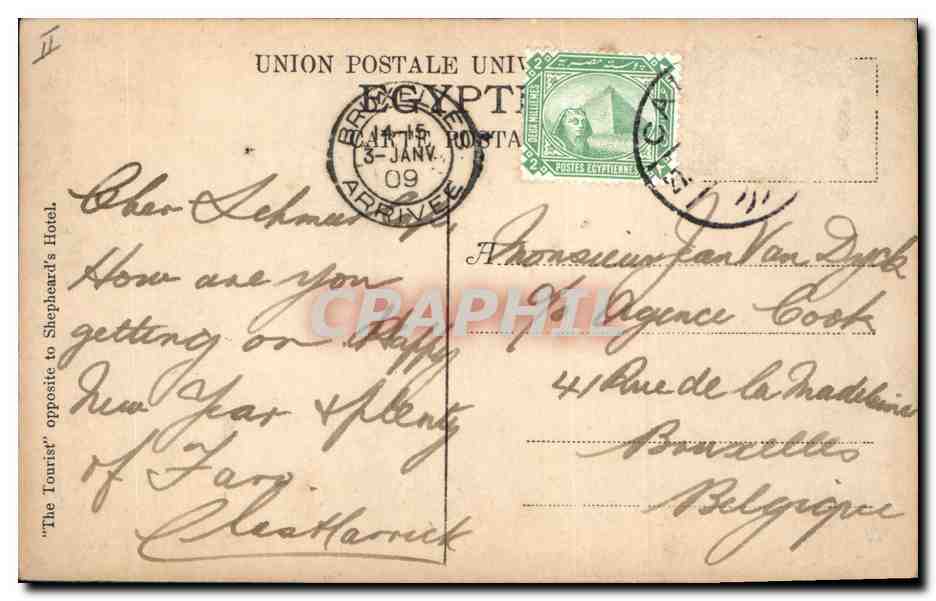 II
UNION POSTALE UNIV
EGYPT
CARTE POSTA
BRUXELLES
14-15
3-JANV.
09
ARRIVÉE
2 بوسته مصرية 2
DEUX MILLIEMES
2 POSTES EGYPTIENNES
CAI
"The Tourist" opposite to Shepheard's Hotel.
Cher
How are you
getting on Happy
New Year & plenty
of
Chas Harrick
A Monsieur Jan Van Dyck
c/o Agence Cook
41 Rue de la Madeleine
Bruxelles
Belgique
CPAPHIL